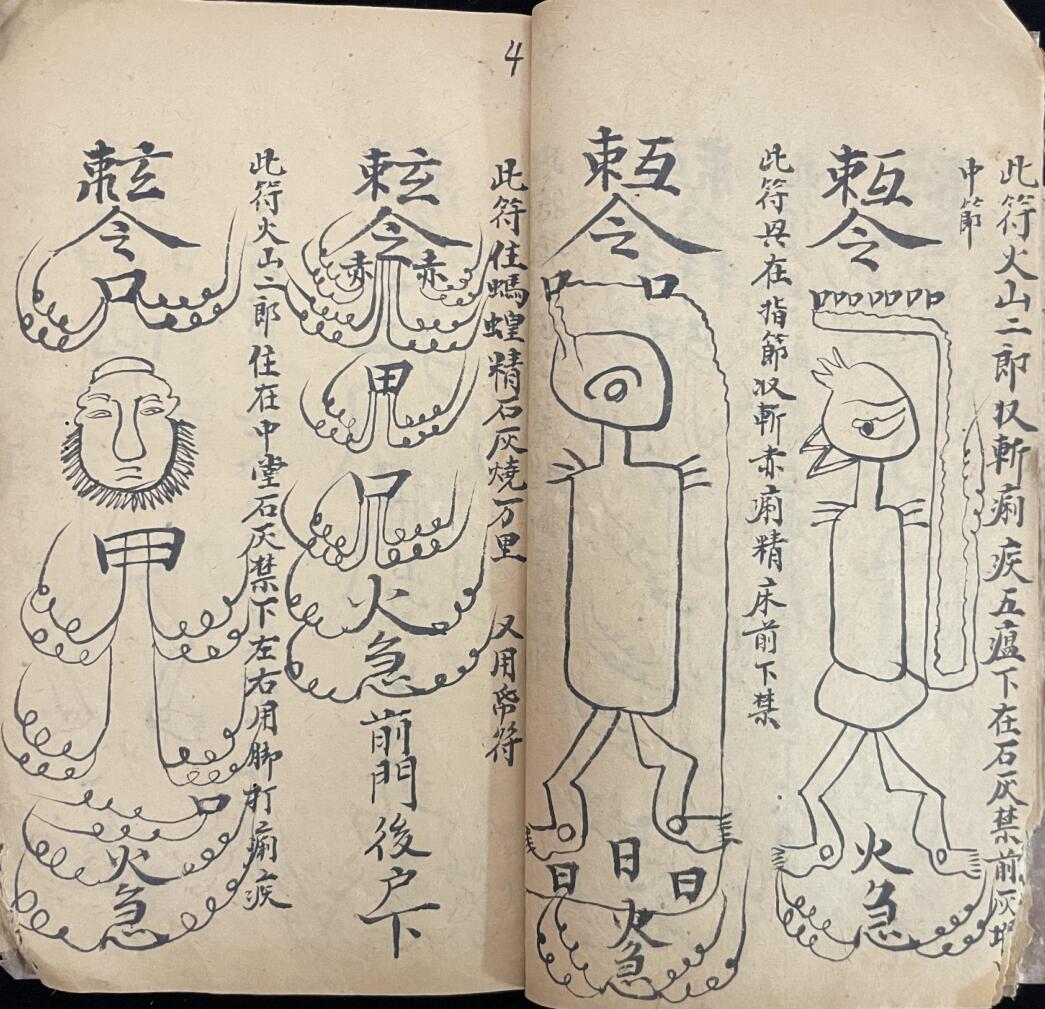 此符火山二郎収斬痢疾五瘟下在石灰禁前灰
中節
敕令
口口口口口口口
火急
此符具在指節収斬赤痢精床前下禁
敕令
口 口
日
日 日
火急
4
此符住螞蝗精石灰燒万里 又用帋符
敕令
赤 赤
甲
尸
火急
前門後户下
此符火山二郎住在中堂石灰禁下左右用脚打痢疾
敕令
口
甲
口
火急